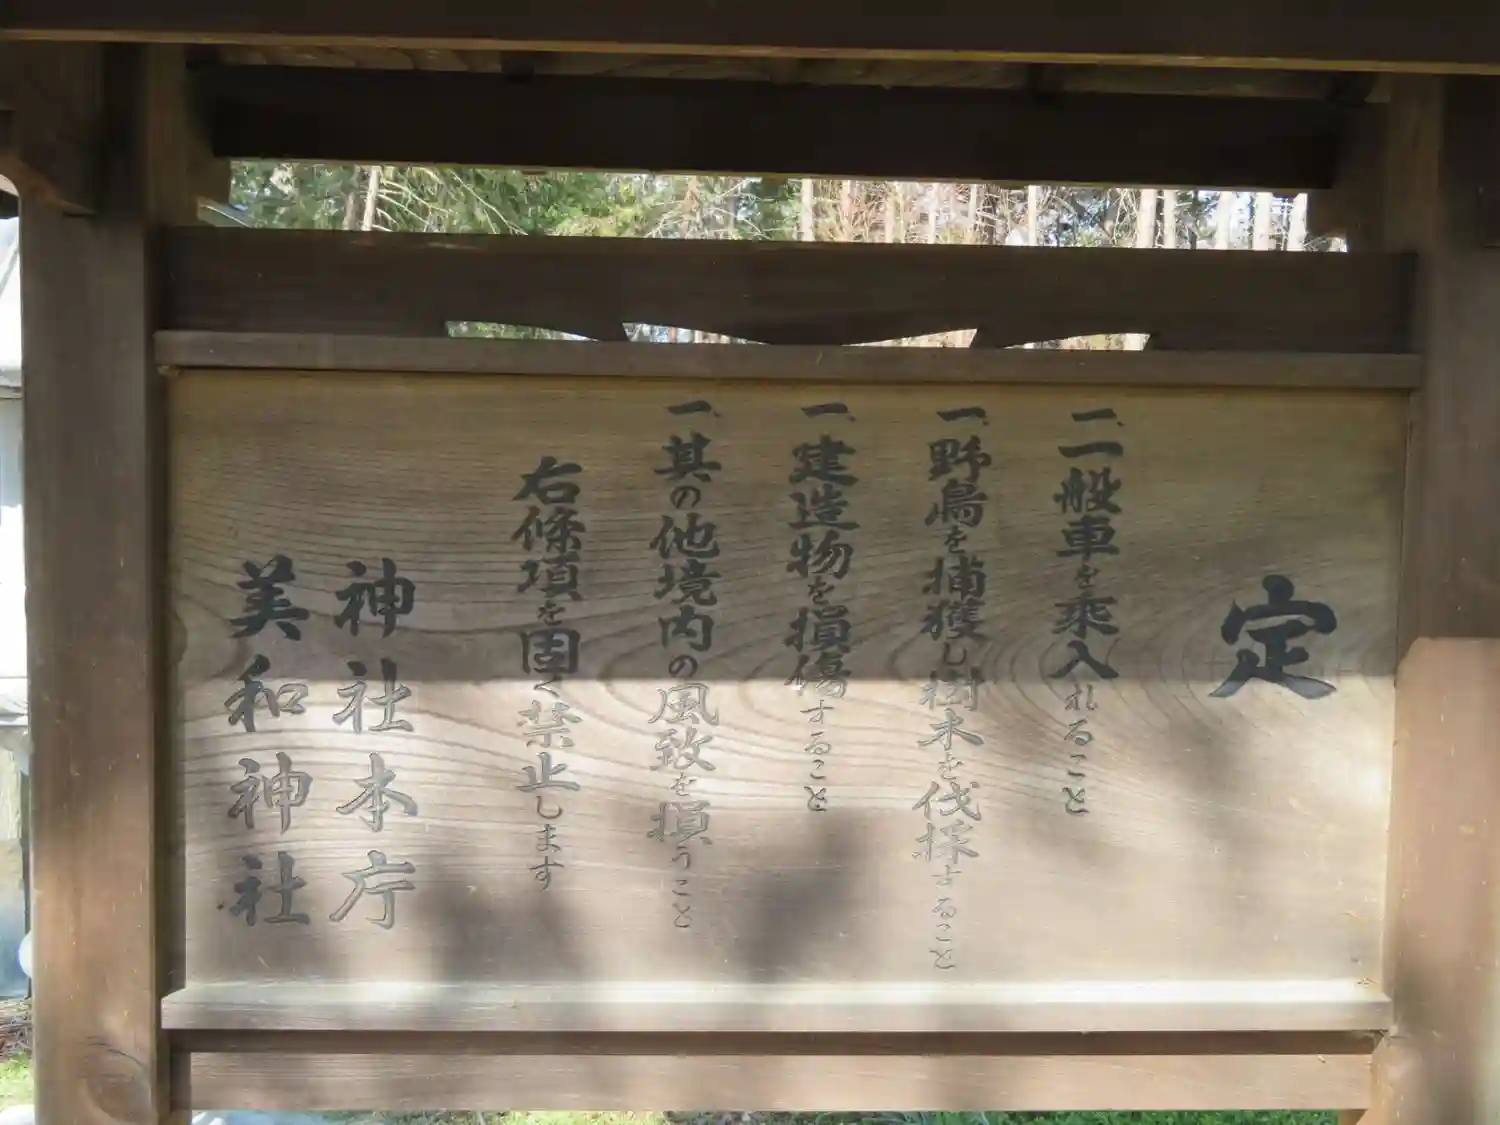 定
一、一般車を乘入れること
一、野鳥を捕獲し樹木を伐採すること
一、建造物を損傷すること
一、其の他境内の風致を損うこと
右條項を固く禁止します
神社本庁
美和神社